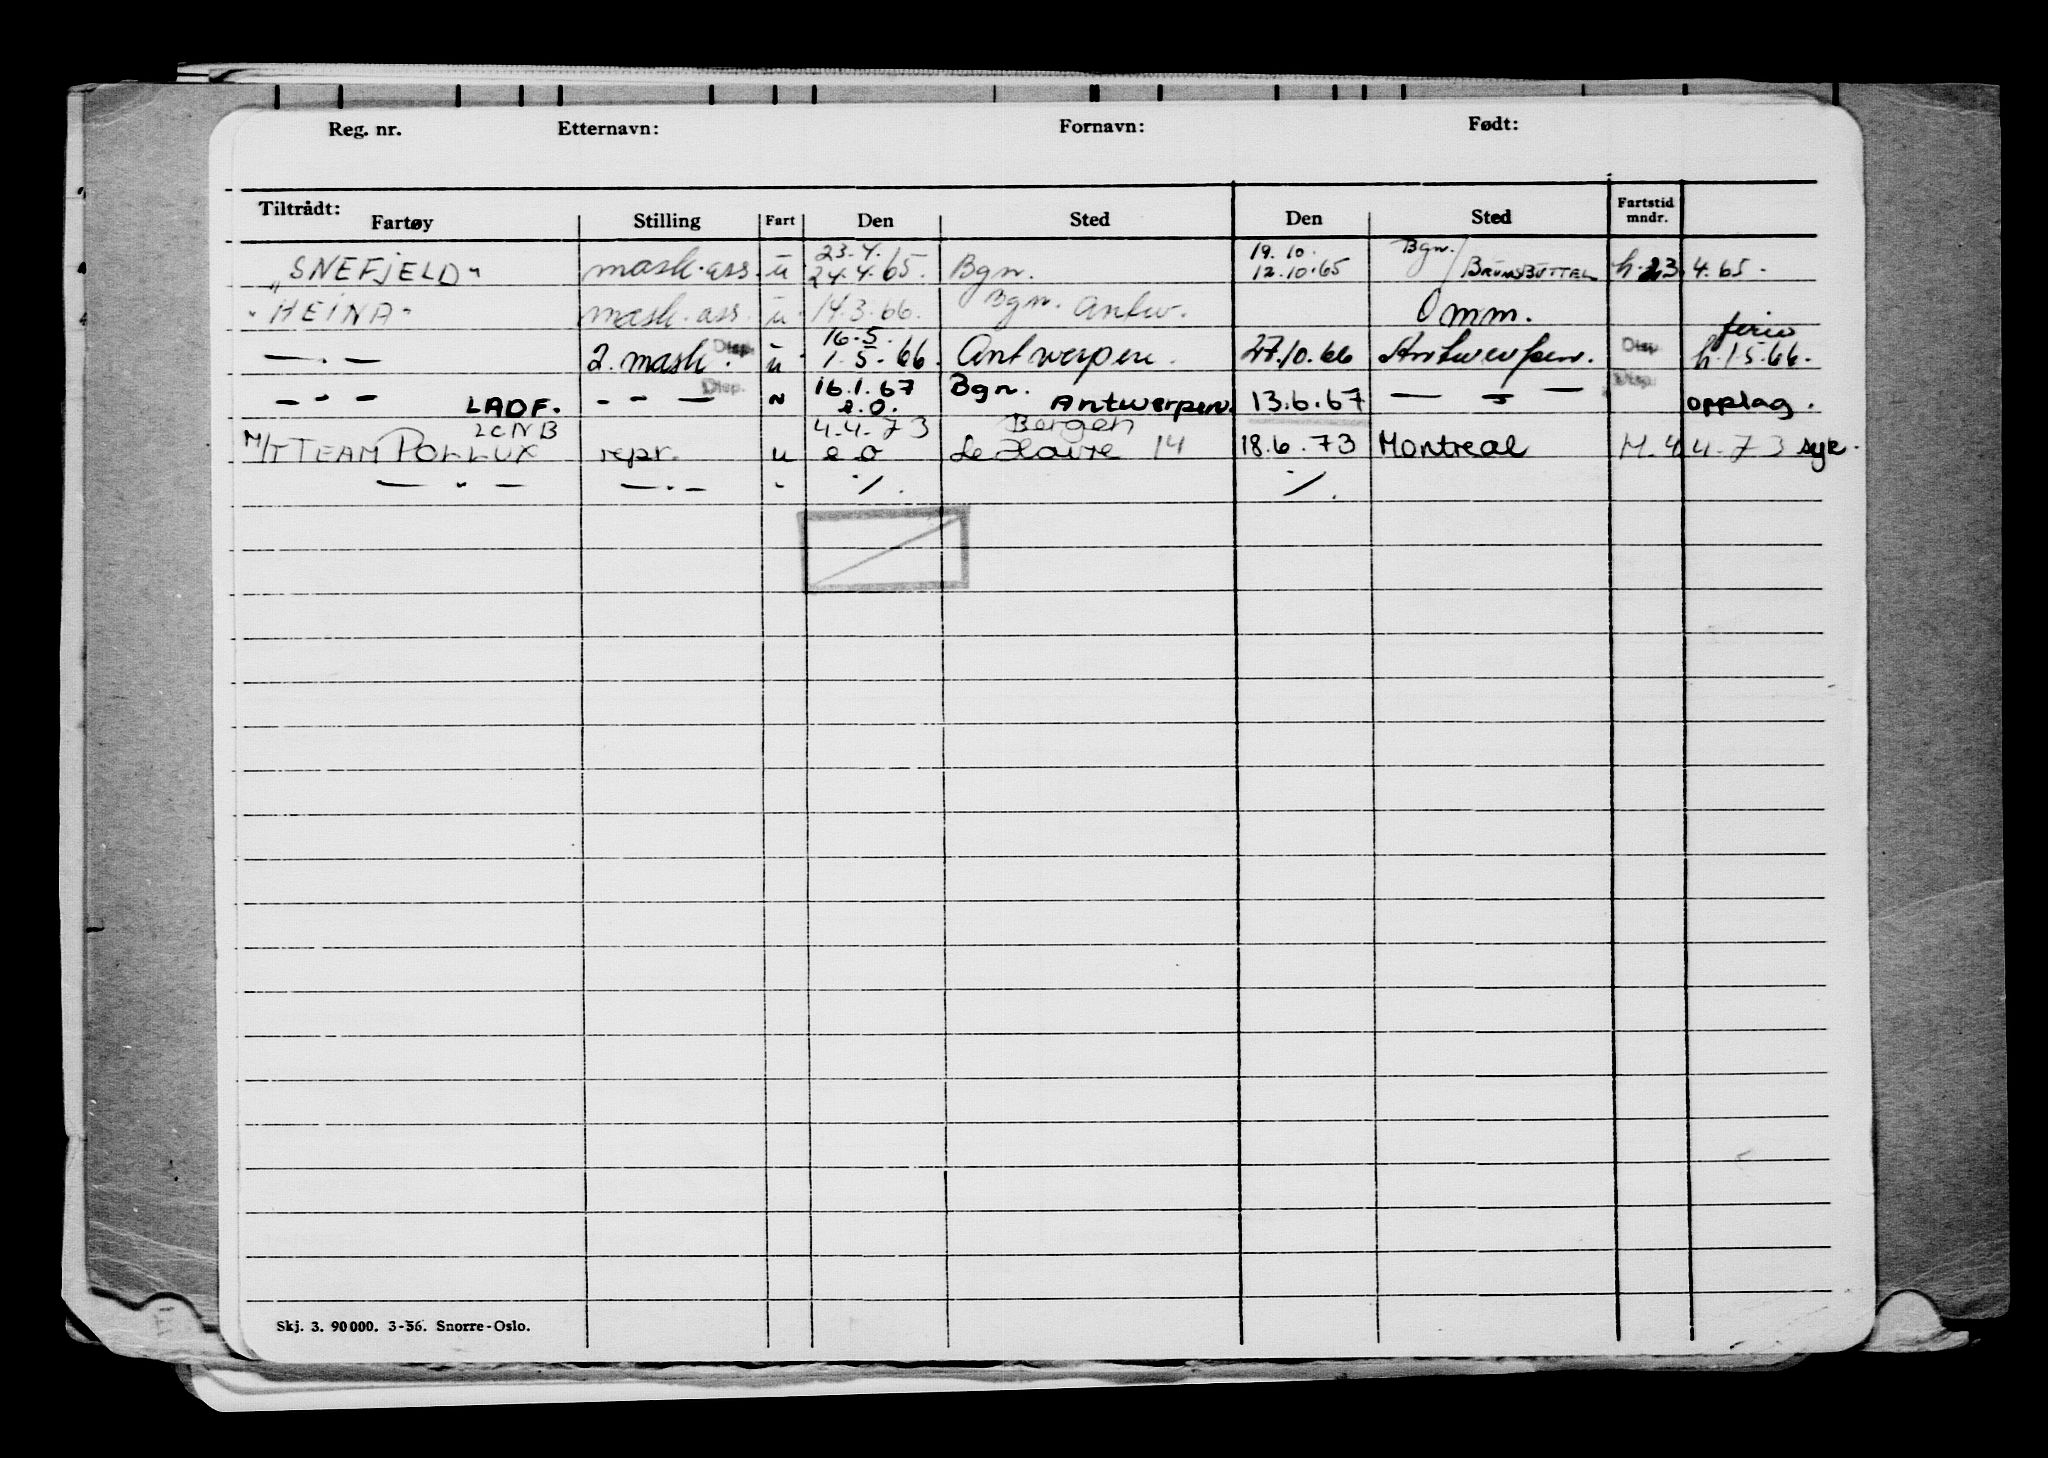 Reg. nr. Etternavn: Fornavn: Født:
Tiltrådt: Fartøy Stilling Fart Den Sted Den Sted Fartstid mndr.
23.4. 19.10. Bgn./
"SNEFJELD" mask.ass. u 24.4.65. Bgn. 12.10.65 BRUNSBÜTTEL h. 23.4.65.
"HEINA" mask.ass. u 14.3.66. Bgn. Antw. Omm.
16.5. ferie
— . — 2. mask. Disp. u 1.5.66. Antwerpen. 27.10.66 Antwerpen. Disp. h.1.5.66.
Disp. 16.1.67 Bgn. Disp.
— - — LADF. - - — " e.o. Antwerpen. 13.6.67 — " — opplag.
LCNB 4.4.73 Bergen
M/T TEAM POLLUX repr. u e o Le Havre 14 18.6.73 Montreal M. 4 4.73 syk.
— " — — . — - ./. ./.
Skj. 3. 90000. 3-56. Snorre-Oslo.